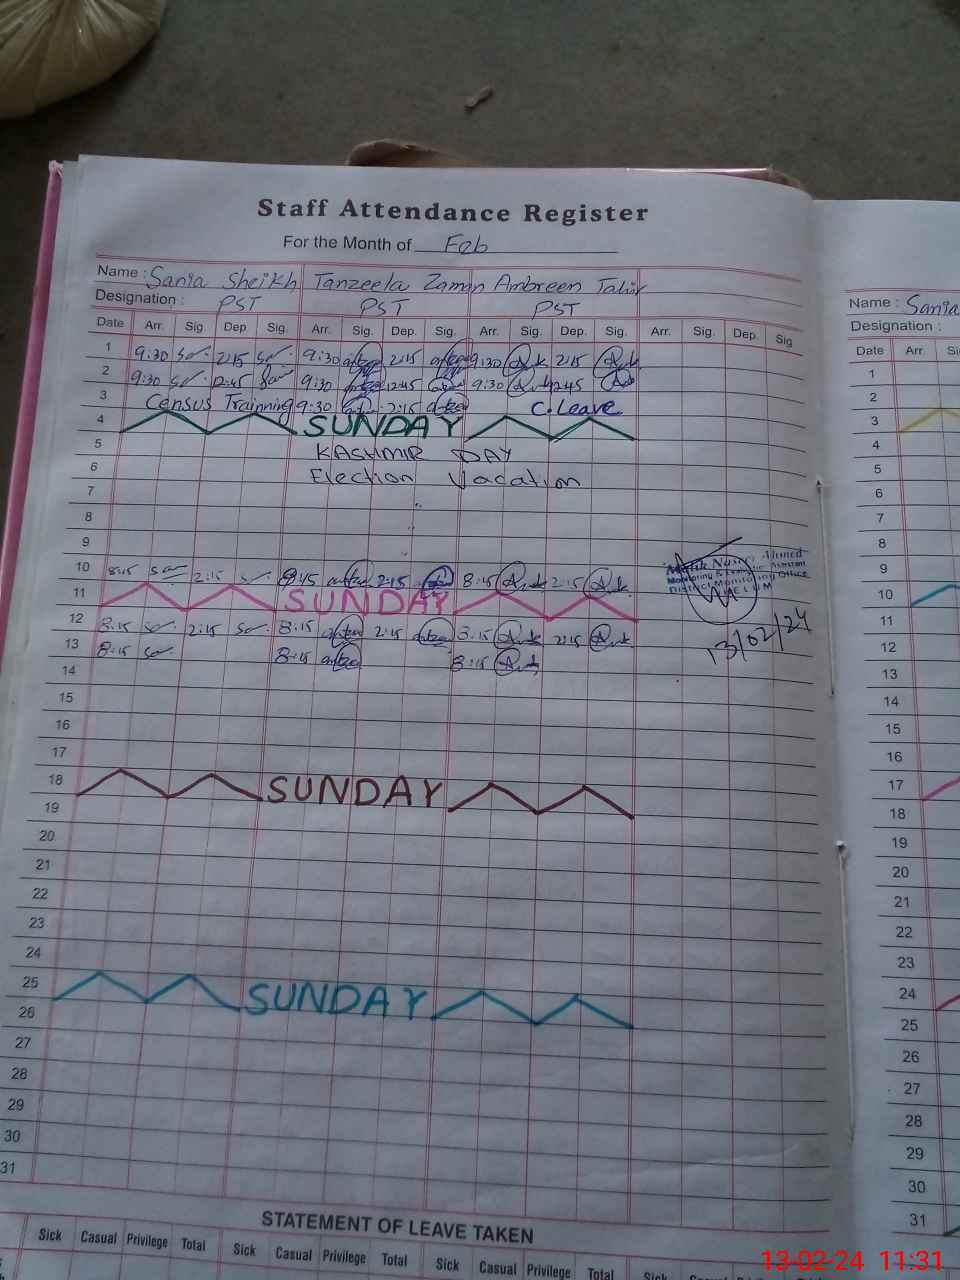 Staff Attendance Register
For the Month of Feb
Name : Sania Sheikh Tanzeela Zaman Ambreen Tahir
Designation : PST PST PST
Date Arr. Sig. Dep Sig. Arr. Sig. Dep. Sig. Arr. Sig. Dep. Sig. Arr. Sig. Dep. Sig
1 9:30 2:15 9:30 2:15 9:30 2:15
2 9:30 12:45 9:30 12:45 9:30 12:45
3 Census Trainning 9:30 2:15 C.Leave
4 SUNDAY
5 KASHMIR DAY
6 Election Vacation
7 "
8 "
9 "
10 8:45 2:15 8:45 2:15 8:45 2:15
11 SUNDAY
12 8:15 2:15 8:15 2:15 8:15 2:15
13 8:15 8:15 8:15
14
15
16
17
18 SUNDAY
19
20
21
22
23
24
25 SUNDAY
26
27
28
29
30
31
Ahmed
Monitoring & Assistant
District Monitoring Office
JHELUM
13/02/24
STATEMENT OF LEAVE TAKEN
Sick Casual Privilege Total Sick Casual Privilege Total Sick Casual Privilege Total Sick
Name : Sania
Designation :
Date Arr.
1
2
3
4
5
6
7
8
9
10
11
12
13
14
15
16
17
18
19
20
21
22
23
24
25
26
27
28
29
30
31
13-02-24 11:31